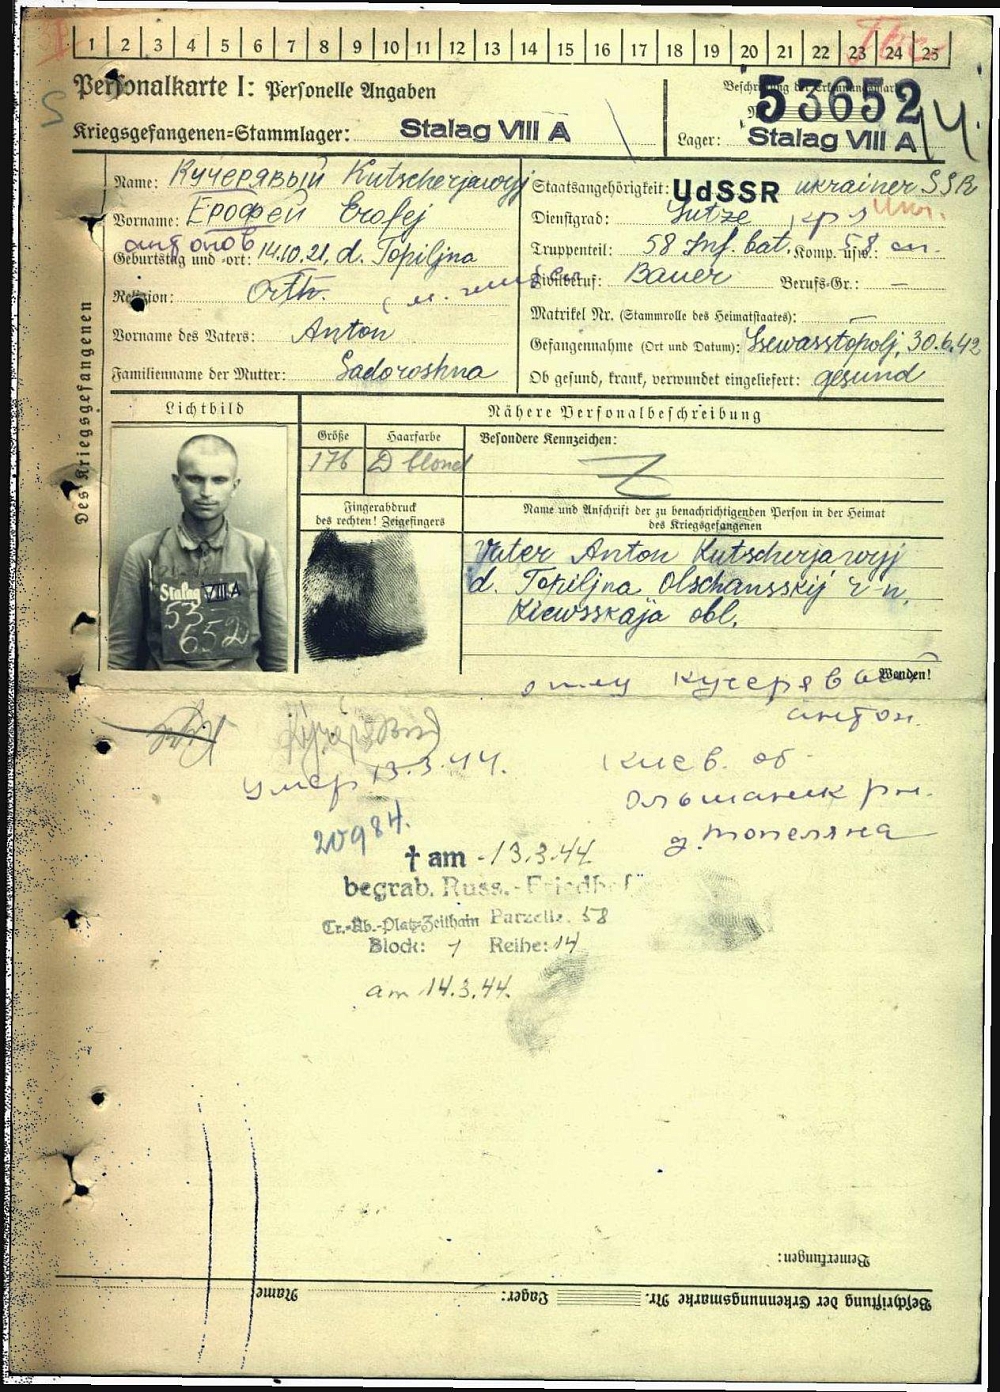 1 2 3 4 5 6 7 8 9 10 11 12 13 14 15 16 17 18 19 20 21 22 23 24 25
Personalkarte I: Personelle Angaben
Beschriftung der Erkennungsmarke
53652
Kriegsgefangenen=Stammlager: Stalag VIII A
Lager: Stalag VIII A
Des Kriegsgefangenen
Name: Кучерявый Kutscherjawyj
Vorname: Ерофей Erofej
антонов
Geburtstag und =ort: 14.10.21, d. Topiljna
Religion: Orth.
Vorname des Vaters: Anton
Familienname der Mutter: Sadoroshna
Staatsangehörigkeit: UdSSR ukrainer SSR
Dienstgrad: кр
Truppenteil: 58 Inf. bat, Komp. usw.: 58
Zivilberuf: Bauer Berufs-Gr.: –
Matrikel Nr. (Stammrolle des Heimatstaates): –
Gefangennahme (Ort und Datum): Ssewasstopolj, 30.6.42
Ob gesund, krank, verwundet eingeliefert: gesund
Lichtbild
Nähere Personalbeschreibung
Größe Haarfarbe Besondere Kennzeichen:
176 D blond
Fingerabdruck
des rechten! Zeigefingers
Name und Anschrift der zu benachrichtigenden Person in der Heimat
des Kriegsgefangenen
Vater Anton Kutscherjawyj
d. Topiljna Olschansskij r-n.
Kiewsskaja obl.
Stalag VIII A
53
652
Wenden!
отцу Кучерявый
антон.
Киев. об
Ольшаник рн.
д. Топеляна
умер 13.3.44.
20984.
† am 13.3.44
begrab. Russ.-Friedhof
Tr.=Üb.=Platz=Zeithain Parzelle. 58
Block: 1 Reihe: 14
am 14.3.44.
Bemerkungen:
Name Lager: Beschriftung der Erkennungsmarke Nr.